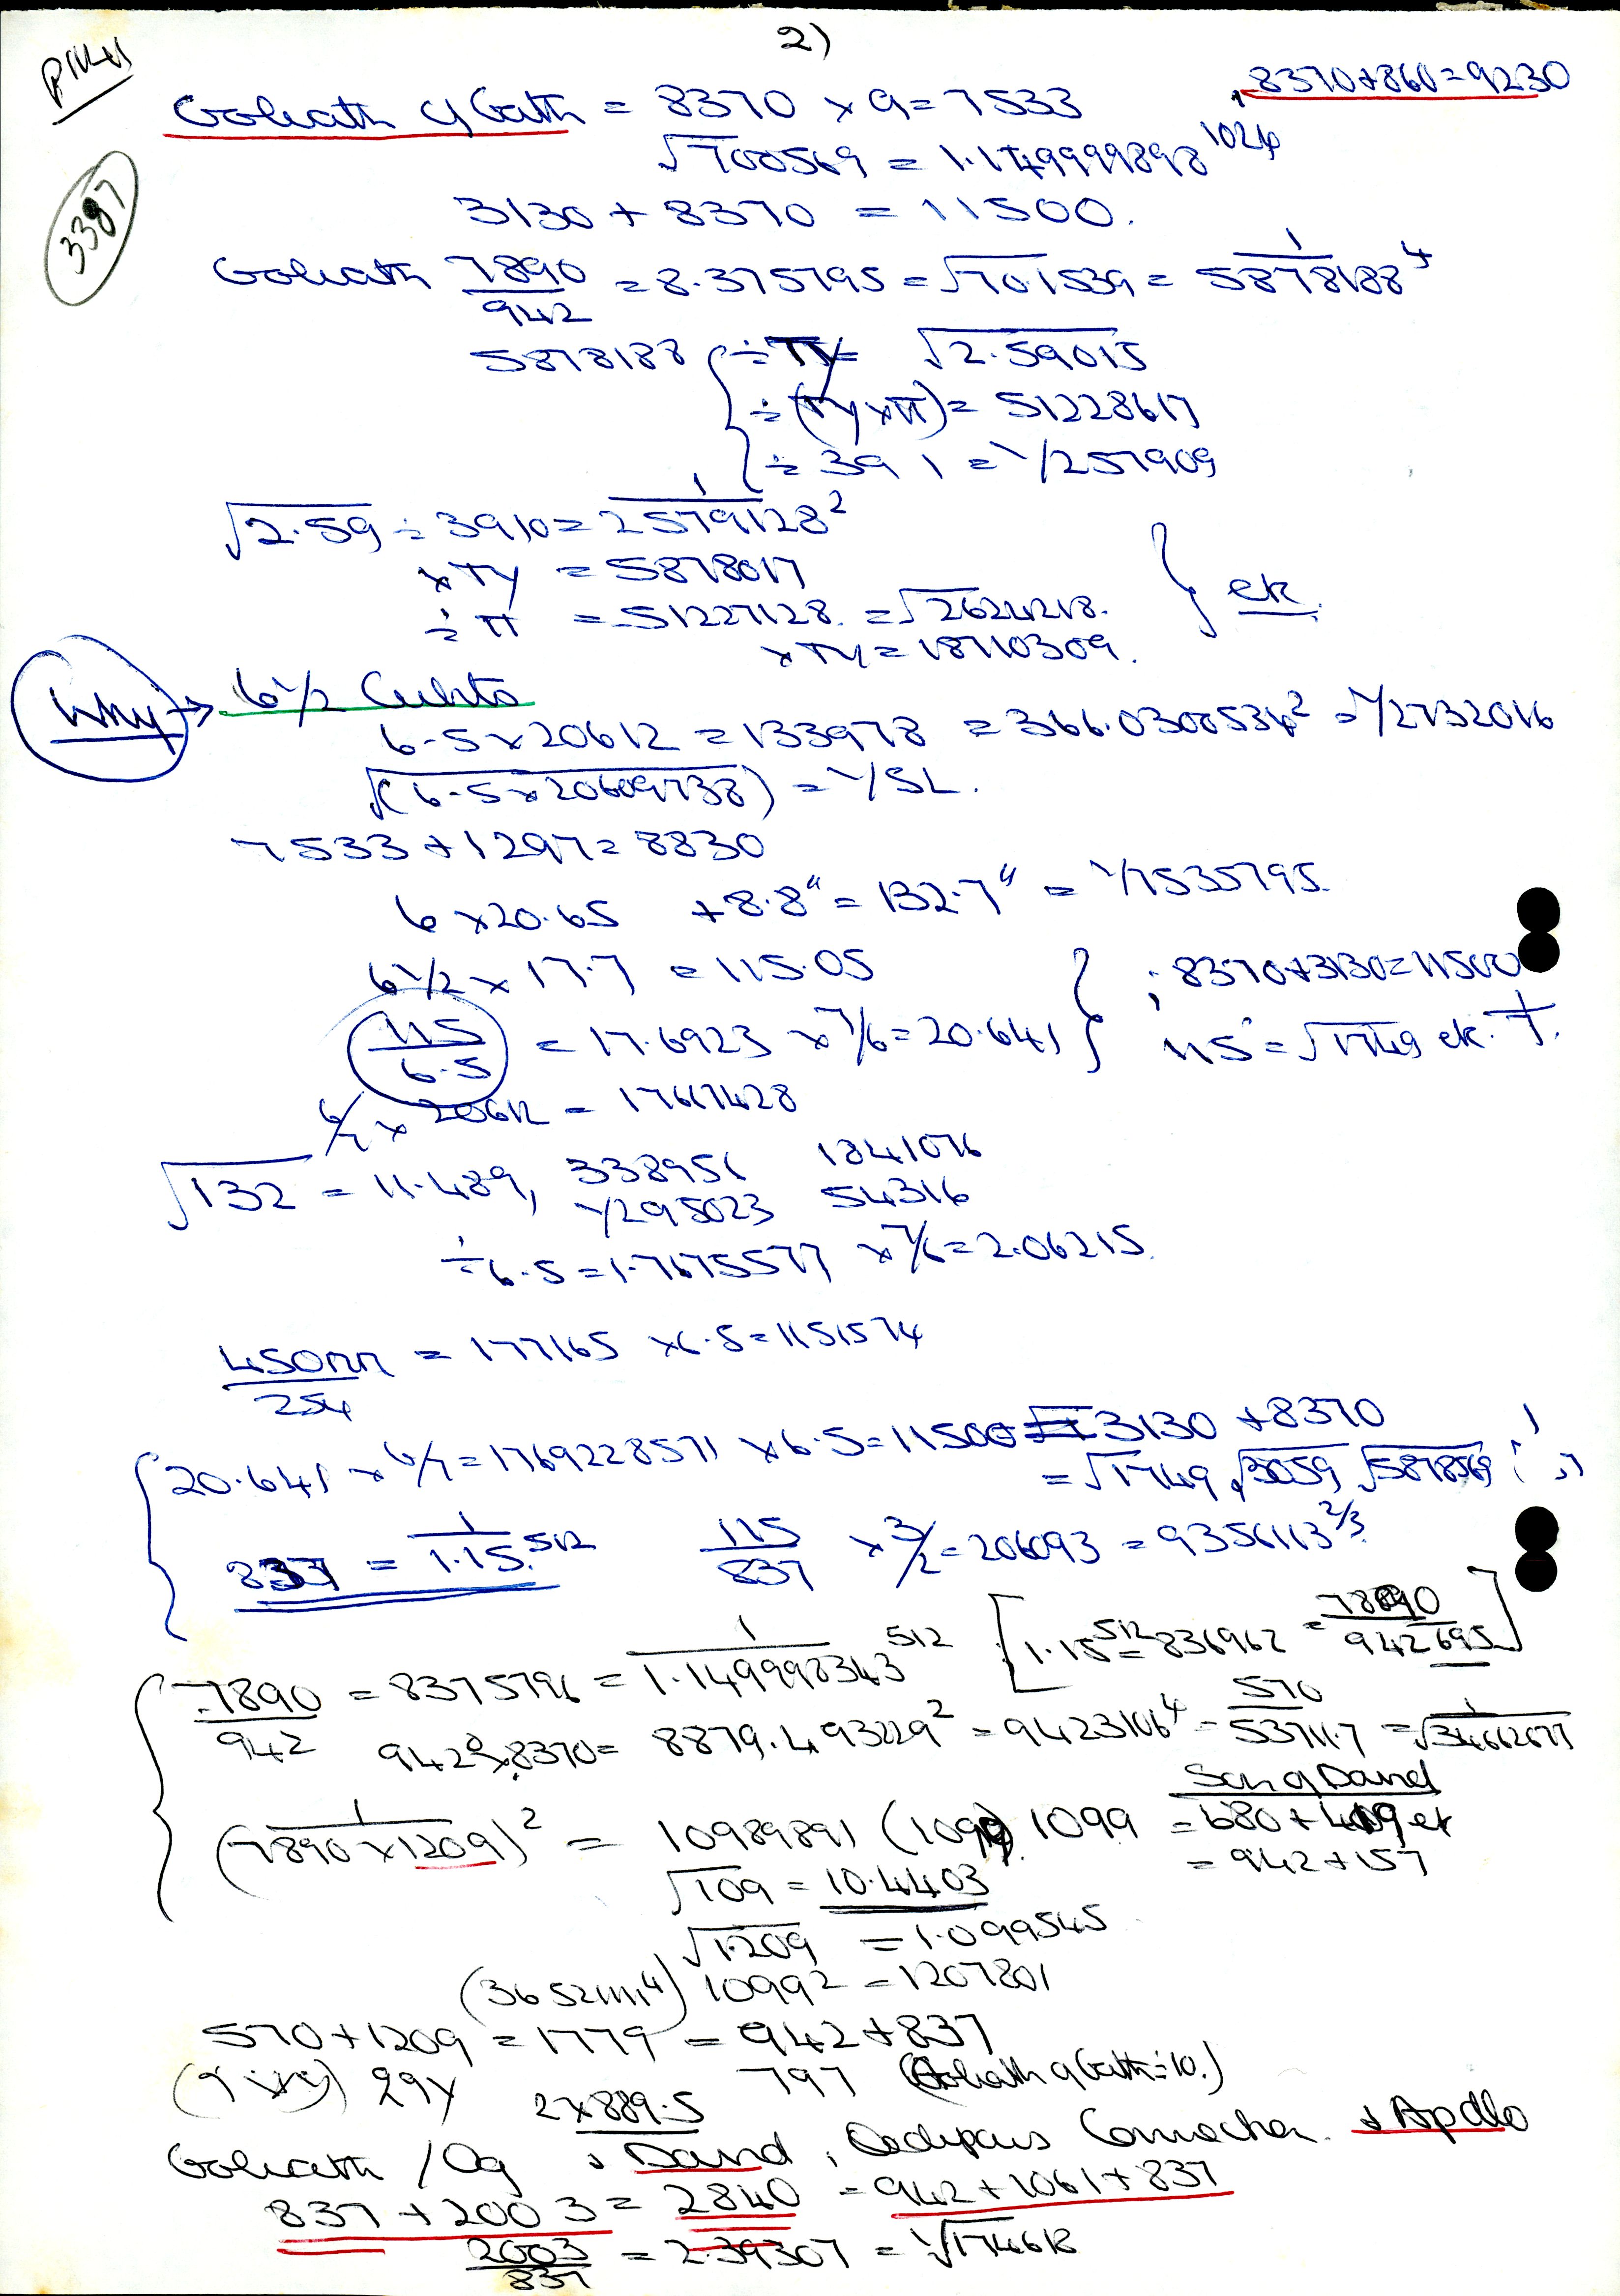 2)
8370+860=9230
Goliath of Gath = 8370 × 9 = 7533
3387
√700569 = 1.149999898^1024
3130 + 8370 = 11500.
Goliath 7890/942 = 8.375795 = √701539 = 1/5878188^4
5878188 { ÷ Ty = √2.59015
÷ (Ty × π) = 51228617
÷ 391 = 1/257909
√2.59 ÷ 3910 = 1/2579128^2
× Ty = 5878017
÷ π = 51227128. = √2624218. } ek.
× Ty = 18710309.
Why → 6 1/2 Cubits
6.5 × 20612 = 133978 = 366.0300536^2 = 1/2732016
√(6.5 × 20609738) = 1/SL.
7533 + 1297 = 8830
6 × 20.65 + 8.8" = 132.7" = 1/7535795.
6 1/2 × 17.7 = 115.05 } ; 8370+3130=11500
115/6.5 = 17.6923 × 7/6 = 20.641 } 115 = √1749 ek. T.
6/7 × 20612 = 17667428
√132 = 11.489, 338951 1841076
1/295023 54316
÷ 6.5 = 1.7675577 × 7/6 = 2.06215.
450mm/254 = 177165 × 6.5 = 1151574
20.641 × 6/7 = 1769228571 × 6.5 = 11500 = 3130 + 8370
= √1749, √3059, √587856
837 = 1/1.15.^512 115/837 × 3/2 = 206093 = 9356113^2/3.
7890/942 = 8375796 = 1/1.149998343^512 [1.15^512 = 836962 = 7890/942695]
942 × 8370 = 8879.493229^2 = 9423106^4 = 570/53711.7 = 1/√34662677
Son of David
(1/7890 × 1209)^2 = 10989891 (1099) 1099 = 680 + 419 ek
= 942 + 157
√109 = 10.4403
√1.209 = 1.099545
(365211^4) 1099^2 = 1207801
570 + 1209 = 1779 = 942 + 837
29y 797 (Goliath of Gath ÷ 10.)
2 × 889.5
Goliath / Og & David, Oedipus Connection. & Apollo
837 + 2003 = 2840 = 942 + 1061 + 837
2003/837 = 2.39307 = 1/√174618